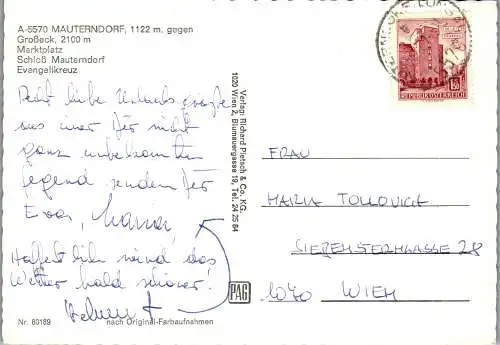 A-5570 MAUTERNDORF, 1122 m, gegen
Großeck, 2100 m
Marktplatz
Schloß Mauterndorf
Evangelikreuz
Recht liebe Urlaubsgrüße
aus einer Dir nicht
ganz unbekannten
Gegend senden Dir
Eva, Maria,
Hoffentlich wird das
Wetter bald schöner!
Helmut
Nr. 80189
nach Original-Farbaufnahmen
Verlag: Richard Pietsch & Co. KG.
1020 Wien 2, Blumauergasse 19, Tel. 24 25 84
PAG
REPUBLIK ÖSTERREICH
1.50
FRAU
MARIA TOLLOVICH
SIEBENSTERNGASSE 28
1070 WIEN